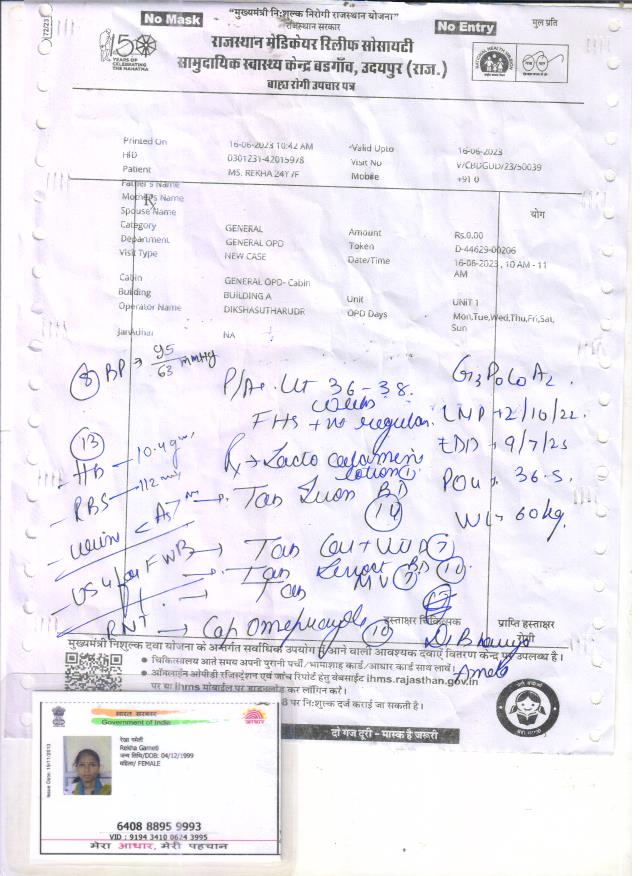 No Mask
"मुख्यमंत्री नि:शुल्क निरोगी राजस्थान योजना"
राजस्थान सरकार
No Entry
मुल प्रति
72/23
150
YEARS OF
CELEBRATING
THE MAHATMA
राजस्थान मेडिकेयर रिलीफ सोसायटी
सामुदायिक स्वास्थ्य केन्द्र बडगाँव, उदयपुर (राज.)
बाह्य रोगी उपचार पत्र
Printed On 16-06-2023 10:42 AM Valid Upto 16-06-2023
HID 0301231-42015978 Visit No V/CBDGUD/23/50039
Patient MS. REKHA 24Y /F Mobile +91 0
Father's Name
Mother's Name
Rx
Spouse Name
योग
Category GENERAL Amount Rs.0.00
Department GENERAL OPD Token D-44629-00206
Visit Type NEW CASE Date/Time 16-06-2023 , 10 AM - 11 AM
Cabin GENERAL OPD- Cabin
Building BUILDING A Unit UNIT 1
Operator Name DIKSHASUTHARUDR OPD Days Mon,Tue,Wed,Thu,Fri,Sat, Sun
JanAdhar NA
8 BP → 95/63 mmHg
P/A Ut 36-38 weeks
G3 P0 L0 A2
FHS +ve regular
LMP → 2/10/22
13
HB — 10.4 gm
Rx → Lacto calamine lotion 1
RBS — 112
POG → 36.5
BD
14
Wt — 60kg
Tab
7
BD
10
Tab MV
Cap Omeprazole 10
हस्ताक्षर चिकित्सक
प्राप्ति हस्ताक्षर
रोगी
मुख्यमंत्री निशुल्क दवा योजना के अन्तर्गत सर्वाधिक उपयोग में आने वाली आवश्यक दवाएं वितरण केन्द्र पर उपलब्ध है।
• चिकित्सालय आते समय अपनी पुरानी पर्ची/भामाशाह कार्ड/आधार कार्ड साथ लावें।
• ऑनलाईन ओपीडी रजिस्ट्रेशन एवं जांच रिपोर्ट हेतु वेबसाईट ihms.rajasthan.gov.in
पर या ihms मोबाईल पर डाउनलोड कर लॉगिन करें।
पर नि:शुल्क दर्ज कराई जा सकती है।
दो गज दूरी - मास्क है जरूरी
भारत सरकार
Government of India
आधार
Issue Date: 19/11/2013
रेखा गमेती
Rekha Gameti
जन्म तिथि/DOB: 04/12/1999
महिला/ FEMALE
6408 8895 9993
VID : 9194 3410 0624 3995
मेरा आधार, मेरी पहचान